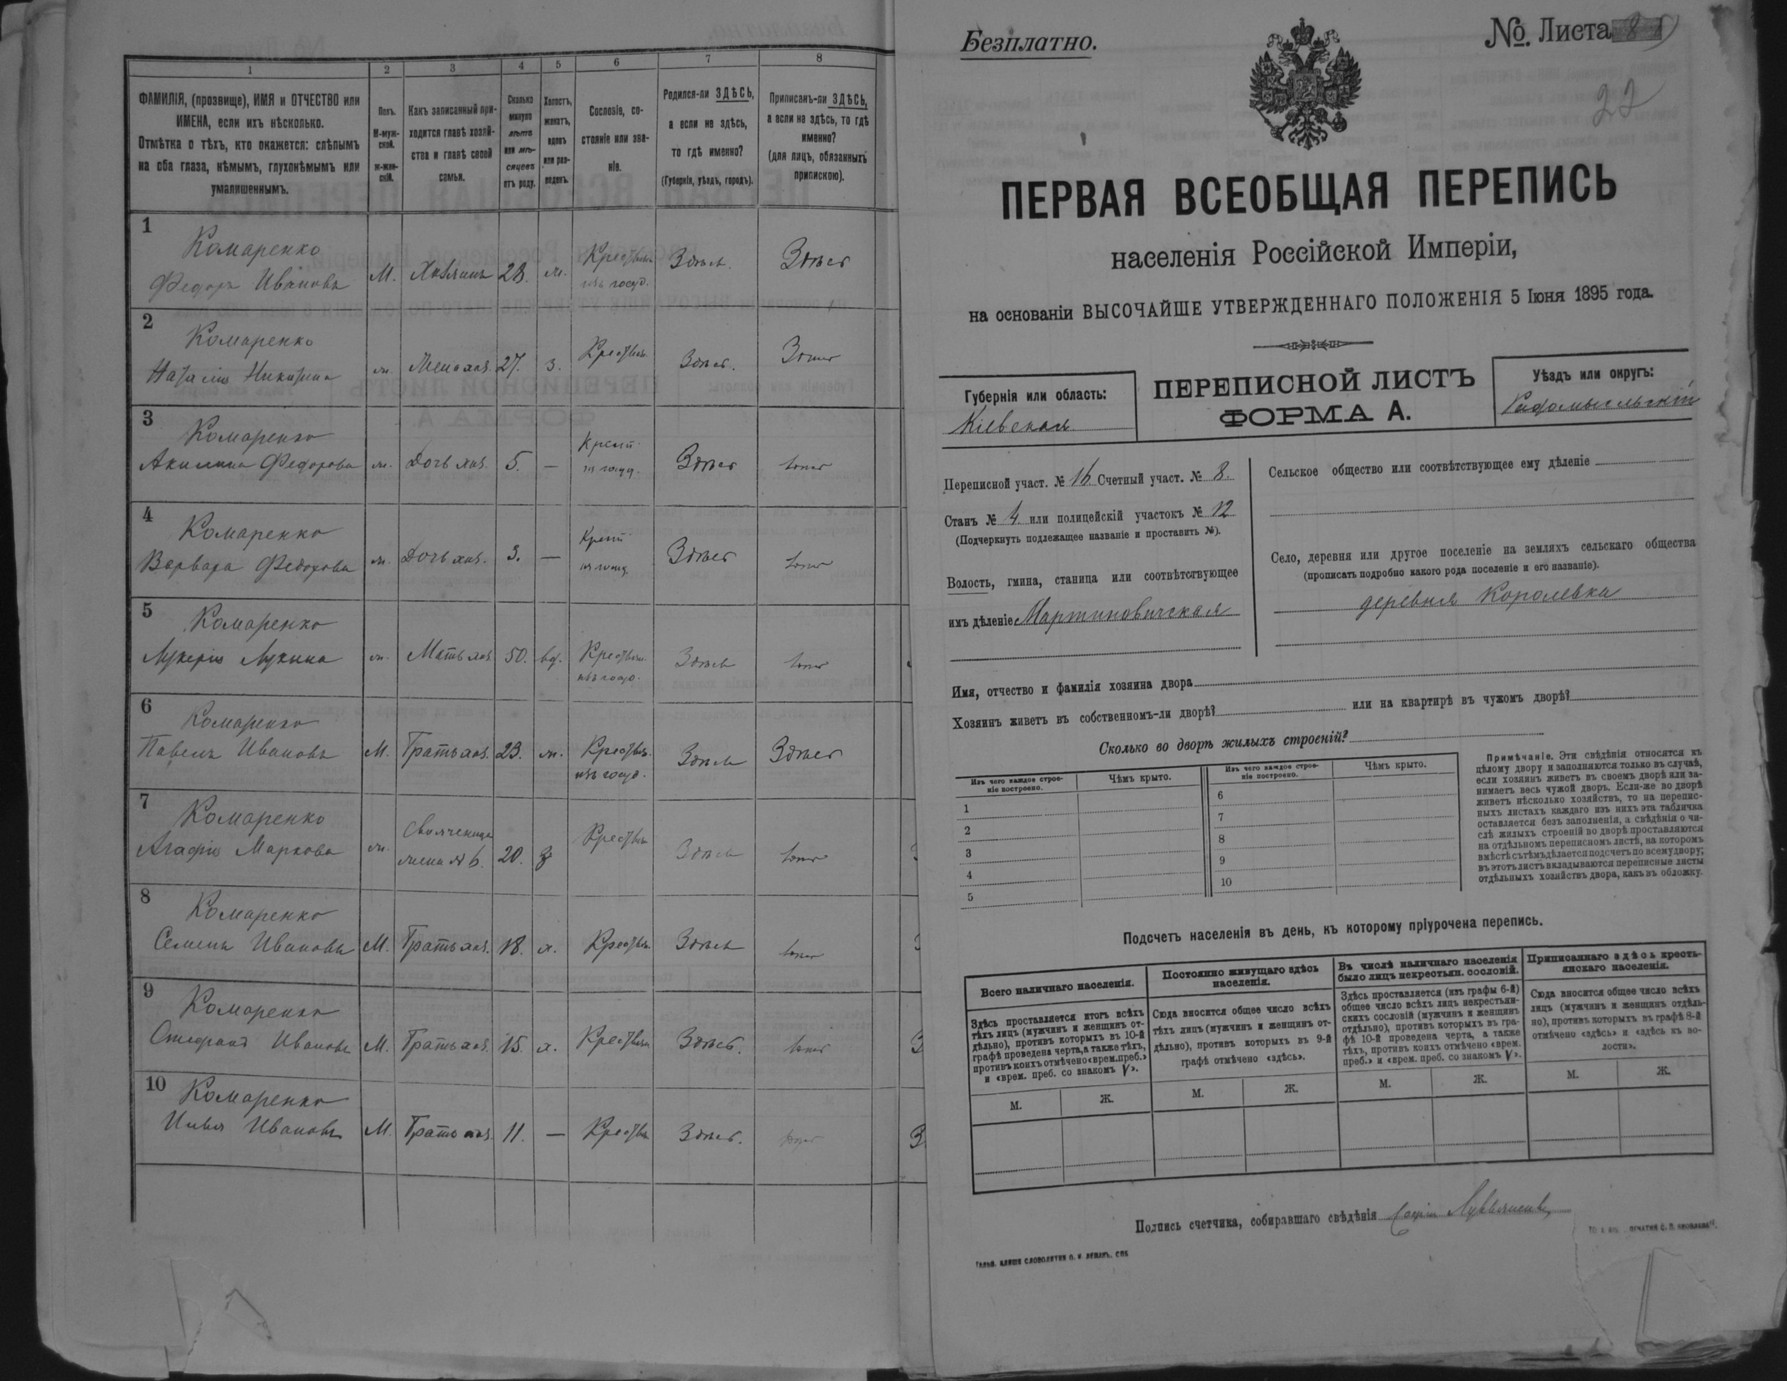 1
2
3
4
5
6
7
8
ФАМИЛІЯ, (прозвище), ИМЯ и ОТЧЕСТВО или
ИМЕНА, если ихъ нѣсколько.
Отмѣтка о тѣхъ, кто окажется: слѣпымъ
на оба глаза, нѣмымъ, глухонѣмымъ или
умалишеннымъ.
Полъ.
М-муж-
ской.
ж-жен-
скій.
Какъ записанный при-
ходится главѣ хозяй-
ства и главѣ своей
семьи.
Сколько
минуло
лѣтъ
или мѣ-
сяцевъ
отъ роду.
Холостъ,
женатъ,
вдовъ
или раз-
веденъ.
Сословіе, со-
стояніе или зва-
ніе.
Родился-ли ЗДѢСЬ,
а если не здѣсь,
то гдѣ именно?
(Губернія, уѣздъ, городъ).
Приписанъ-ли ЗДѢСЬ,
а если не здѣсь, то гдѣ
именно?
(для лицъ, обязанныхъ
припискою).
1
Комаренко
Федоръ Ивановъ М. Хозяинъ 28. ж. Крестьян. изъ госуд. Здѣсь Здѣсь
2
Комаренко
Наталія Никитина ж. Жена хоз. 27. з. Крестьян. Здѣсь. Здѣсь
3
Комаренко
Акилина Федорова ж. Дочь хоз. 5. — Крест. Здѣсь
4
Комаренко
Варвара Федорова ж. Дочь хоз. 3. — Крест. Здѣсь
5
Комаренко
Лукерія Лукина ж. Мать хоз. 50. вд. Крестьян. изъ госуд. Здѣсь
6
Комаренко
Павелъ Ивановъ М. Братъ хоз. 23. ж. Крестьян. изъ госуд. Здѣсь Здѣсь
7
Комаренко
Агафія Маркова ж. 20. з Крестьян Здѣсь
8
Комаренко
Семенъ Ивановъ М. Братъ хоз. 18. х. Крестьян. Здѣсь
9
Комаренко
Ивановъ М. Братъ хоз. 15. х. Крестьян Здѣсь.
10
Комаренко
Илья Ивановъ М. Братъ хоз. 11. — Крестьян Здѣсь.
Безплатно.
№ Листа
22
ПЕРВАЯ ВСЕОБЩАЯ ПЕРЕПИСЬ
населенія Россійской Имперіи,
на основаніи ВЫСОЧАЙШЕ УТВЕРЖДЕННАГО ПОЛОЖЕНІЯ 5 Іюня 1895 года.
Губернія или область:
Кіевская
ПЕРЕПИСНОЙ ЛИСТЪ
ФОРМА А.
Уѣздъ или округъ:
Радомысльскій
Переписной участ. № 16 Счетный участ. № 8.
Станъ № 4 или полицейскій участокъ № 12
(Подчеркнуть подлежащее названіе и проставить №).
Волость, гмина, станица или соотвѣтствующее
имъ дѣленіе Мартиновичская
Сельское общество или соотвѣтствующее ему дѣленіе
Село, деревня или другое поселеніе на земляхъ сельскаго общества
(прописать подробно какого рода поселеніе и его названіе).
деревня Королевка
Имя, отчество и фамилія хозяина двора
Хозяинъ живетъ въ собственномъ-ли дворѣ? или на квартирѣ въ чужомъ дворѣ?
Сколько во дворѣ жилыхъ строеній?
Изъ чего каждое строе-
ніе построено.
Чѣмъ крыто.
Изъ чего каждое строе-
ніе построено.
Чѣмъ крыто.
1
2
3
4
5
6
7
8
9
10
Примѣчаніе. Эти свѣдѣнія относятся къ
цѣлому двору и заполняются только въ случаѣ,
если хозяинъ живетъ въ своемъ дворѣ или за-
нимаетъ весь чужой дворъ. Если-же во дворѣ
живетъ нѣсколько хозяйствъ, то на перепис-
ныхъ листахъ каждаго изъ нихъ эта табличка
оставляется безъ заполненія, а свѣдѣнія о чи-
слѣ жилыхъ строеній во дворѣ проставляются
на отдѣльномъ переписномъ листѣ, на которомъ
вмѣстѣ съ тѣмъ дѣлается подсчетъ по всему двору;
въ этотъ листъ вкладываются переписные листы
отдѣльныхъ хозяйствъ двора, какъ въ обложку.
Подсчетъ населенія въ день, къ которому пріурочена перепись.
Всего наличнаго населенія.
Постоянно живущаго здѣсь
населенія.
Въ числѣ наличнаго населенія
было лицъ некрестьян. сословій.
Приписаннаго здѣсь кресть-
янскаго населенія.
Здѣсь проставляется итогъ всѣхъ
тѣхъ лицъ (мужчинъ и женщинъ от-
дѣльно), противъ которыхъ въ 10-й
графѣ проведена черта, а также тѣхъ,
противъ коихъ отмѣчено «врем. преб.»
и «врем. преб. со знакомъ V».
Сюда вносится общее число всѣхъ
тѣхъ лицъ (мужчинъ и женщинъ от-
дѣльно), противъ которыхъ въ 9-й
графѣ отмѣчено «здѣсь».
Здѣсь проставляется (изъ графы 6-й)
общее число всѣхъ лицъ некрестьян-
скихъ сословій (мужчинъ и женщинъ
отдѣльно), противъ которыхъ въ гра-
фѣ 10-й проведена черта, а также
тѣхъ, противъ коихъ отмѣчено «врем.
преб.» и «врем. преб. со знакомъ V».
Сюда вносится общее число всѣхъ
лицъ (мужчинъ и женщинъ отдѣль-
но), противъ которыхъ въ графѣ 8-й
отмѣчено «здѣсь» и «здѣсь къ во-
лости».
М. Ж. М. Ж. М. Ж. М. Ж.
Подпись счетчика, собиравшаго свѣдѣнія